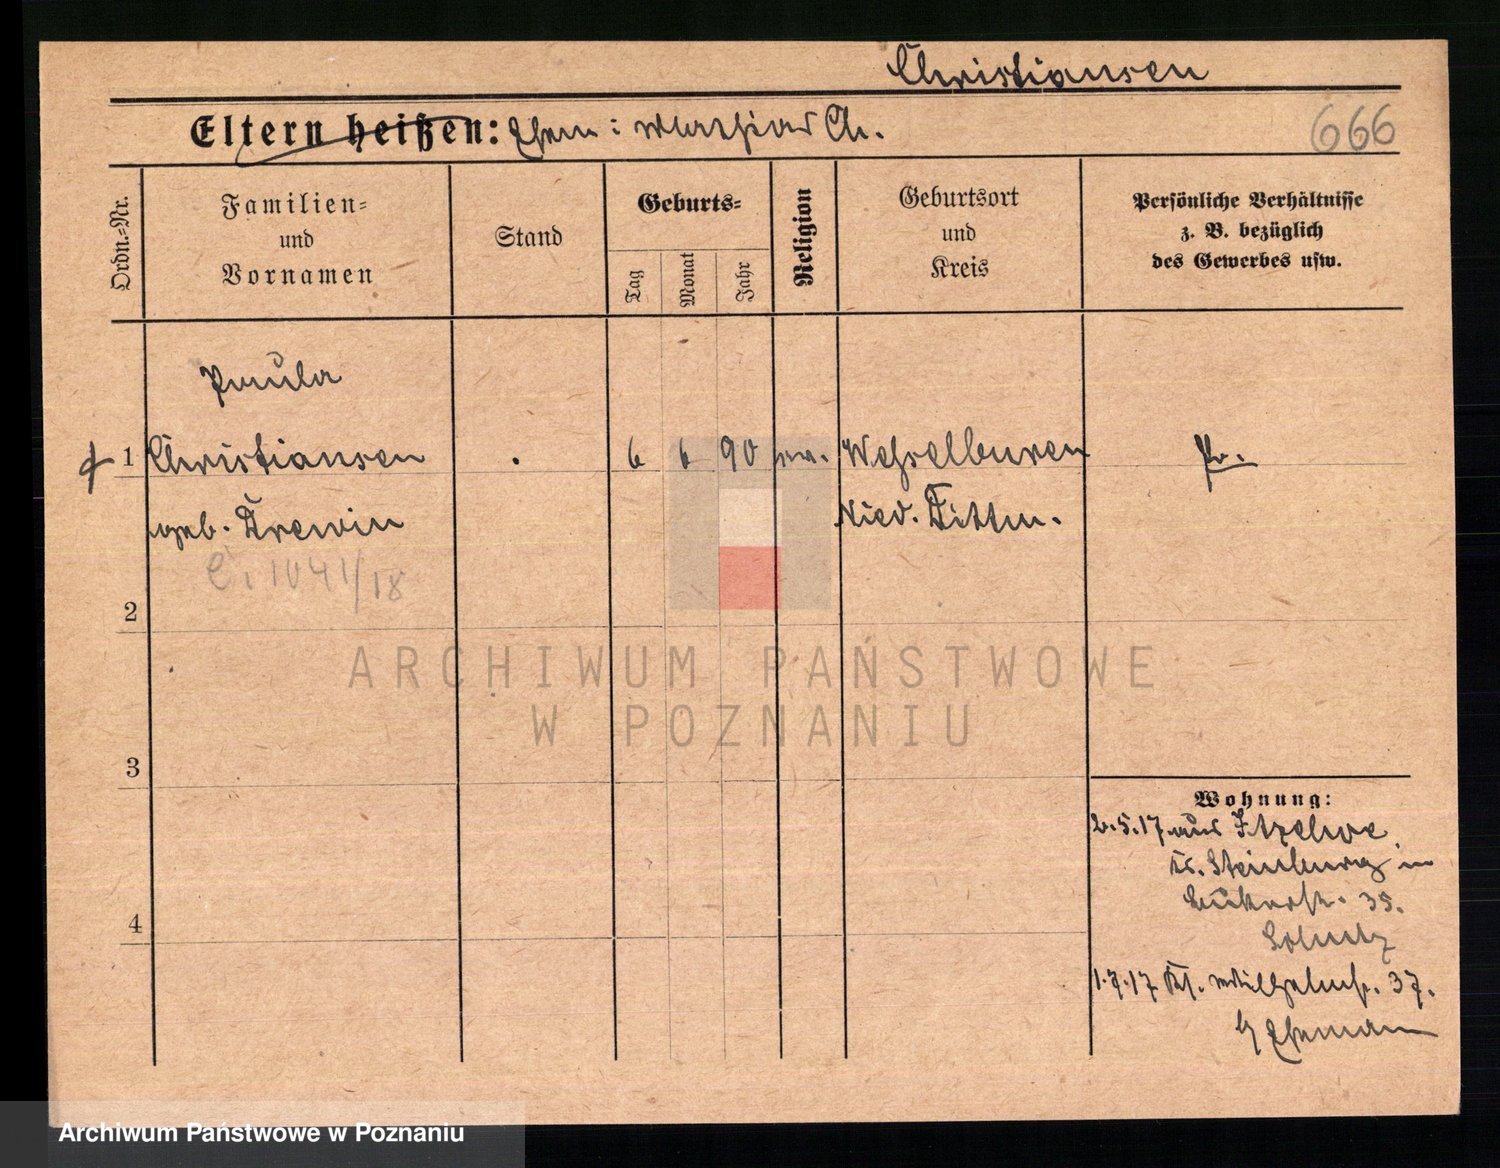 Christiansen
Eltern heißen: Ehem: Mathias Ch.
666
Ordn.-Nr.
Familien-
und
Vornamen
Stand
Geburts-
Tag
Monat
Jahr
Religion
Geburtsort
und
Kreis
Persönliche Verhältnisse
z. B. bezüglich
des Gewerbes usw.
Paula
1 Christiansen . 6 6 90 ev. Wesselburen Pr.
geb. Drewin Nied. Dittm.
C. 1041/18
2
ARCHIWUM PAŃSTWOWE
W POZNANIU
3
Wohnung:
2.5.17 aus Itzehoe
Kr. Steinburg in
35.
4
1.7.17 Ks. Wilhelmstr. 37.
b/ Ehemann
Archiwum Państwowe w Poznaniu